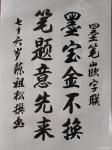 墨笔嵌字联
墨宝金不换
笔题意先来
七十六岁 祖松撰书